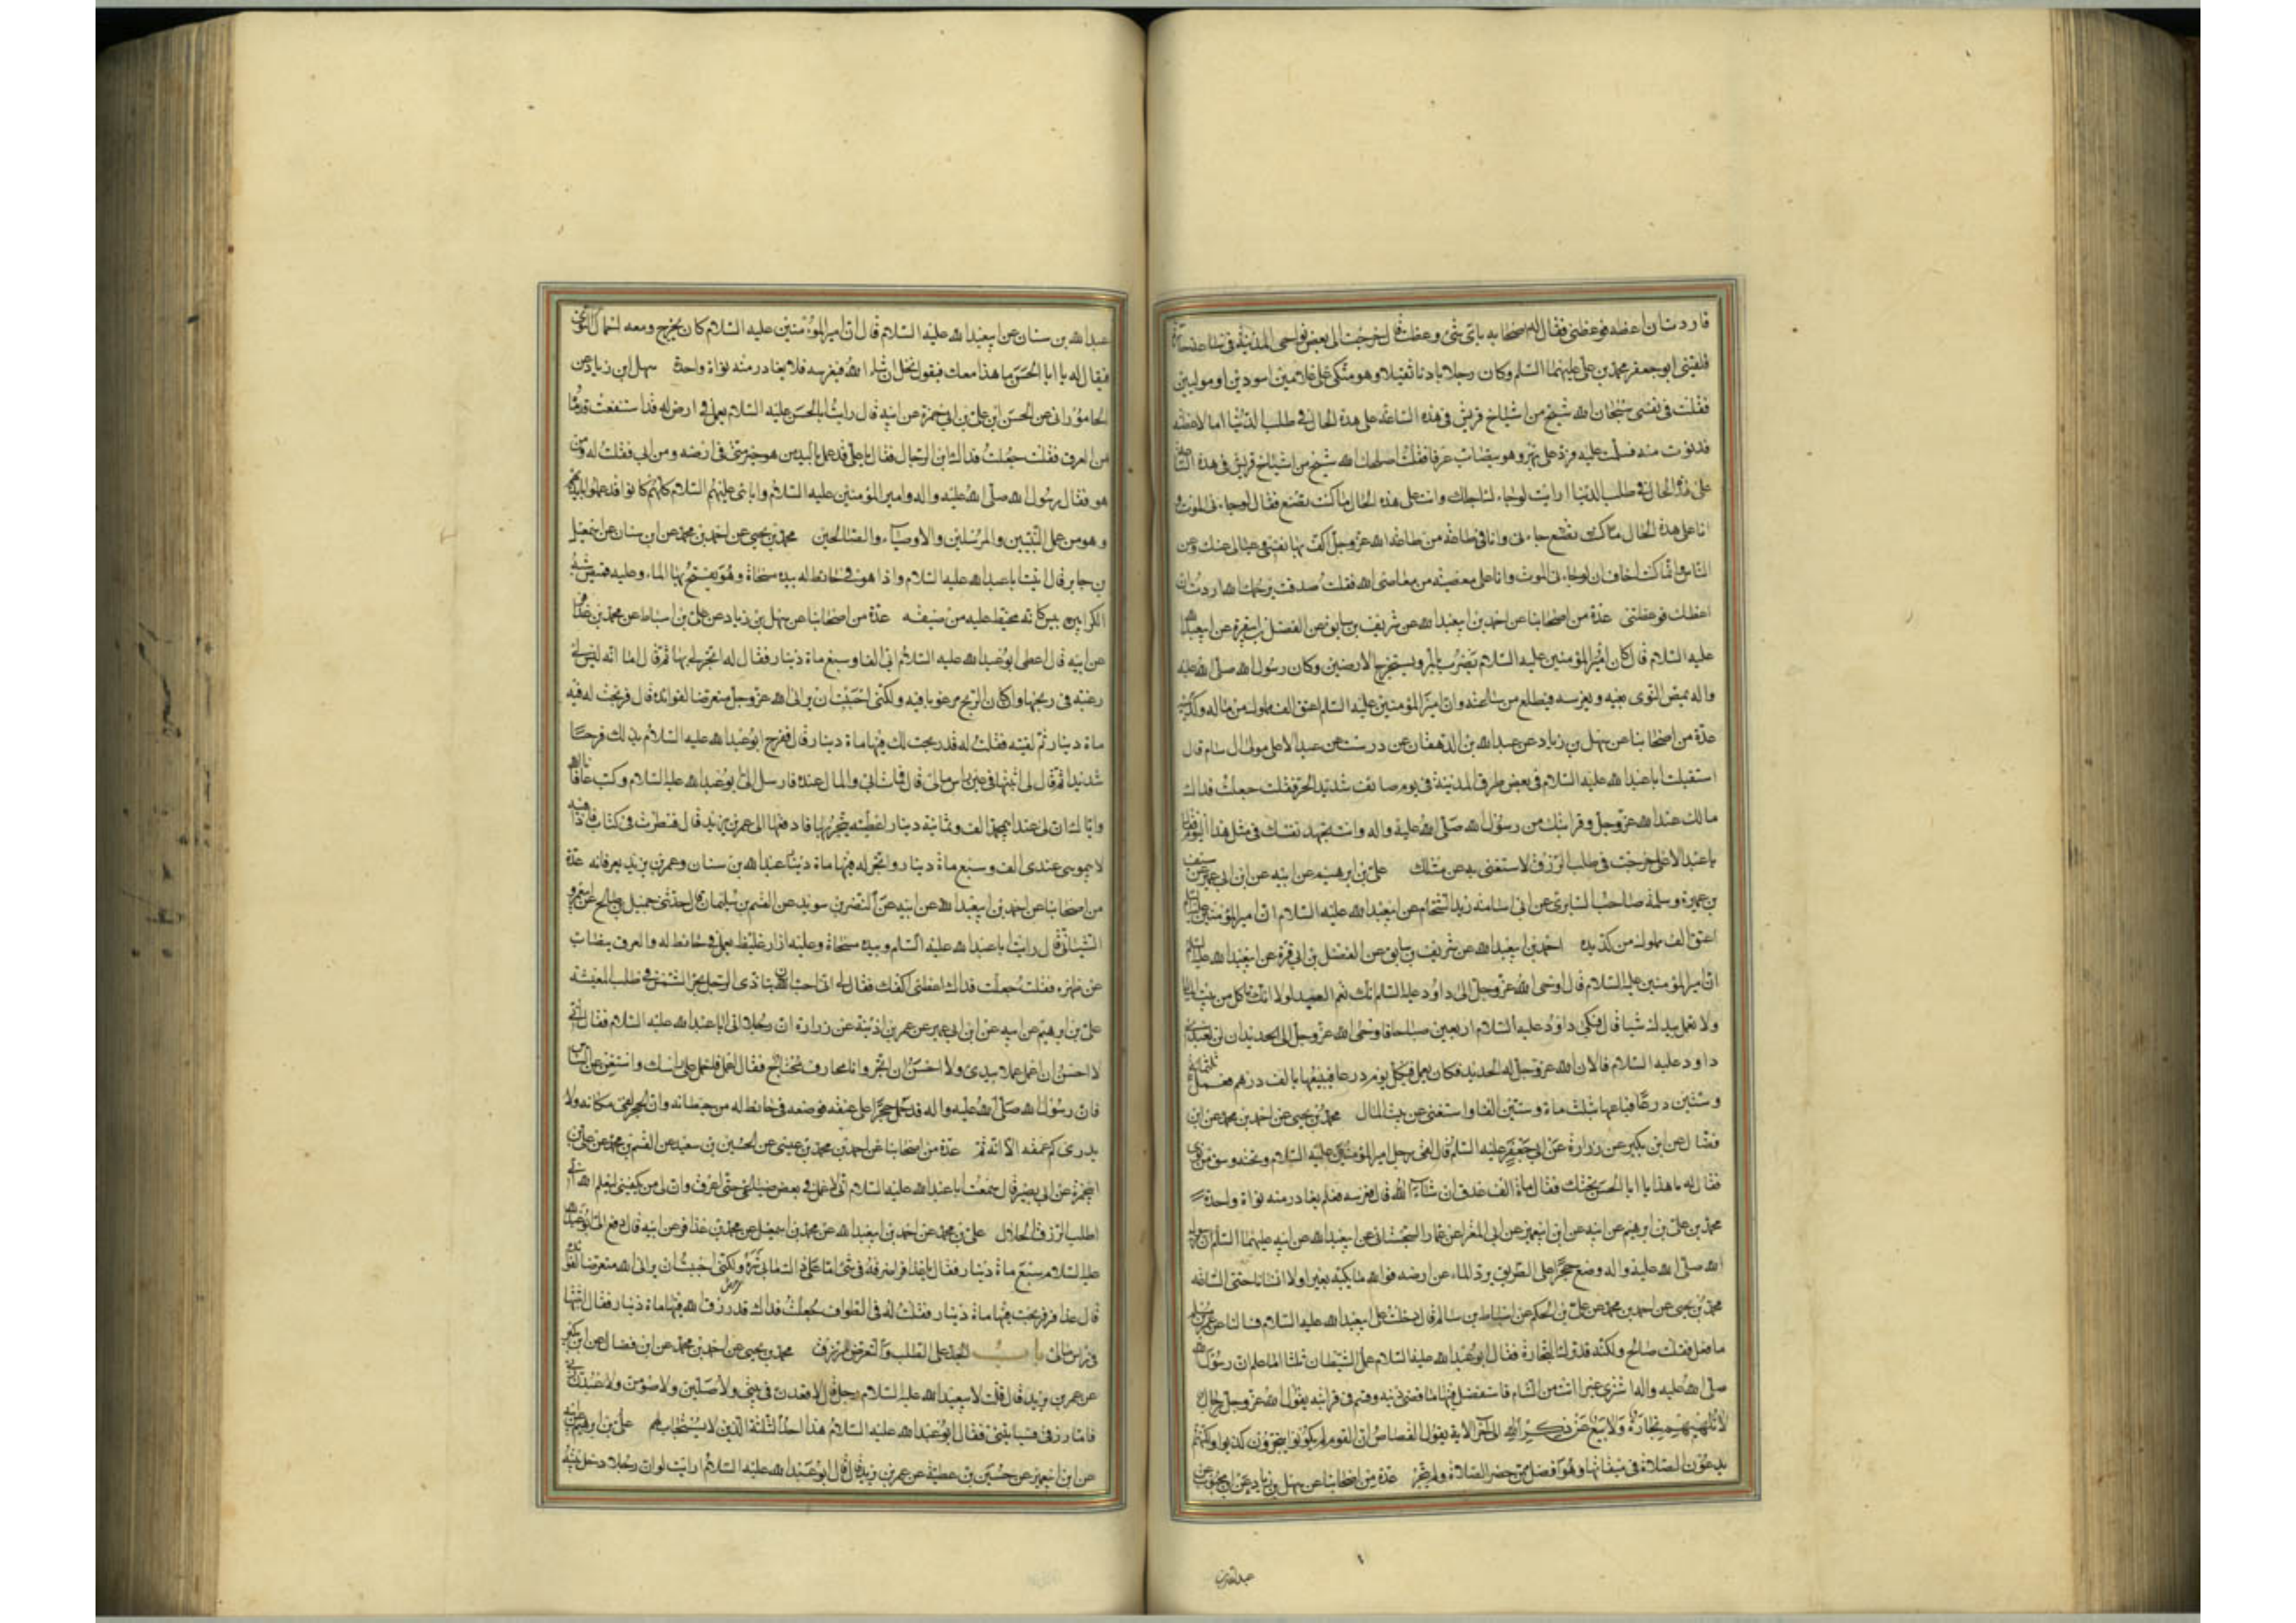 فاردت ان اعظه فوعظنى فقال له اصحابه باى شئ وعظك قال خرجت الى بعض نواحى المدينة فى ساعة حارة
فلقينى ابو جعفر محمد بن على عليهما السلم وكان رجلا بادنا ثقيلا وهو متكى على غلامين اسودين او موليين
فقلت فى نفسى سبحان الله شيخ من اشياخ قريش فى هذه الساعة على هذه الحال فى طلب الدنيا اما لاعظنه
فدنوت منه فسلمت عليه فرد على بنهر وهو يتصاب عرقا فقلت اصلحك الله شيخ من اشياخ قريش فى هذه الساعة
على هذه الحال فى طلب الدنيا ارايت لوجاء اجلك وانت على هذه الحال ما كنت تصنع فقال لوجاءنى الموت و
انا على هذه الحال جاءنى وانا فى طاعة من طاعة الله عز وجل اكف بها نفسى وعيالى عنك وعن
الناس وانما كنت اخاف ان لوجاءنى الموت وانا على معصية من معاصى الله فقلت صدقت يرحمك الله اردت ان
اعظك فوعظتنى عدة من اصحابنا عن احمد بن ابيعبد الله عن شريف بن سابق عن الفضل بن ابى قرة عن ابيعبد الله
عليه السلام قال كان امير المؤمنين عليه السلام يضرب بالمر ويستخرج الارضين وكان رسول الله صلى الله عليه
واله يمص النوى بفيه ويغرسه فيطلع من ساعته وان امير المؤمنين عليه السلم اعتق الف مملوك من ماله وكد يده
عدة من اصحابنا عن سهل بن زياد عن عبد الله بن الدهقان عن درست عن عبد الاعلى مولى ال سام قال
استقبلت ابا عبد الله عليه السلام فى بعض طرق المدينة فى يوم صائف شديد الحر فقلت جعلت فداك
مالك عند الله عز وجل وقرابتك من رسول الله صلى الله عليه واله وانت تجهد نفسك فى مثل هذا اليوم فقال
يا عبد الاعلى خرجت فى طلب الرزق لاستغنى به عن مثلك على بن ابرهيم عن ابيه عن ابن ابى عمير عن سيف
بن عميرة وسلمة صاحب السابرى عن ابى اسامة زيد الشحام عن ابيعبد الله عليه السلام ان امير المؤمنين عليه السلم
اعتق الف مملوك من كد يده احمد بن ابيعبد الله عن شريف بن سابق عن الفضل بن ابى قرة عن ابيعبد الله عليه السلم
ان امير المؤمنين عليه السلام قال اوحى الله عز وجل الى داود عليه السلم انك نعم العبد لولا انك تاكل من بيت المال
ولا تعمل بيدك شيا قال فبكى داود عليه السلام اربعين صباحا فاوحى الله عز وجل الى الحديد ان لن لعبدى
داود عليه السلام فالان الله عز وجل له الحديد فكان يعمل فى كل يوم درعا فيبيعها بالف درهم فعمل ثلثمائة
وستين درعا فباعها بثلثماة وستين الفا واستغنى عن بيت المال محمد بن يحيى عن احمد بن محمد عن ابن
فضال عن ابن بكير عن زرارة عن ابى جعفر عليه السلم قال لقى رجل امير المؤمنين عليه السلام وتحته وسق من نوى
فقال له ما هذا يا ابا الحسن تحتك فقال ماة الف عذق ان شاء الله قال فغرسه فلم يغادر منه نواة واحدة
محمد بن على بن ابرهيم عن ابيه عن ابن ابيعمير عن ابى المغرا عن عمار السجستانى عن ابيعبد الله عن ابيه عليهما السلم ان رسول
الله صلى الله عليه واله وضع حجرا على الطريق يرد الماء عن ارضه فوالله ما نكب بعيرا ولا انسانا حتى الساعة
محمد بن يحيى عن احمد بن محمد عن على بن الحكم عن اسباط بن سالم قال دخلت على ابيعبد الله عليه السلام فسالنا عن عمر بن مسلم
ما فعل فقلت صالح ولكنه قد ترك التجارة فقال ابو عبد الله عليه السلام عمل الشيطان ثلثا اما علم ان رسول الله
صلى الله عليه واله اشترى عيرا اتت من الشام فاستفضل فيها ما قضى دينه وقسم فى قرابته يقول الله عز وجل رجال
لا تلهيهم تجارة ولا بيع عن ذكر الله الى اخر الاية يقول القصاص ان القوم لم يكونوا يتجرون كذبوا ولكنهم
يدعون الصلاة فى ميقاتها وهو افضل ممن حضر الصلاة ولم يتجر عدة من اصحابنا عن سهل بن زياد عن ابن محبوب عن
عبد الله بن سنان عن ابيعبد الله عليه السلام قال ان امير المؤمنين عليه السلام كان يخرج ومعه احمال النوى
فيقال له يا ابا الحسن ما هذا معك فيقول نخل ان شاء الله فيغرسه فلا يغادر منه نواة واحدة سهل ابن زياد عن
الجامورانى عن الحسن ابن على بن ابى حمزة عن ابيه قال رايت ابا الحسن عليه السلام يعمل فى ارض له قد استنقعت قدماه
من العرق فقلت جعلت فداك اين الرجال فقال يا على قد عمل باليد من هو خير منى فى ارضه ومن ابى فقلت له ومن
هو فقال رسول الله صلى الله عليه واله وامير المؤمنين عليه السلام واباى عليهم السلام كلهم كانوا قد عملوا بايديهم
وهو من عمل النبيين والمرسلين والاوصياء والصالحين محمد بن يحيى عن احمد بن محمد عن ابن سنان عن اسمعيل
بن جابر قال اتيت ابا عبد الله عليه السلام واذا هو فى حائط له بيده مسحاة وهو يفتح بها الماء وعليه قميص شبه
الكرابيس كانه مخيط عليه من ضيقه عدة من اصحابنا عن سهل بن زياد عن على بن اسباط عن محمد بن عذافر
عن ابيه قال اعطى ابو عبد الله عليه السلام ابى الفا وسبع ماة دينار فقال له اتجر لى بها ثم قال اما انه ليس لى
رغبة فى ربحها وان كان الربح مرغوبا فيه ولكنى احببت ان يرانى الله عز وجل متعرضا لفوائده قال فربحت له فيه
ماة دينار ثم لقيته فقلت له قد ربحت لك فيها ماة دينار قال ففرح ابو عبد الله عليه السلام بذلك فرحا
شديدا ثم قال لى اثبتها فى راس مالى قال فمات ابى والمال عنده فارسل الى ابو عبد الله عليه السلام وكتب عافانا الله
واياك ان لى عند ابى محمد الف وثمانية دينار اعطيته يتجر بها فادفعها الى عمر بن يزيد قال فنظرت فى كتاب ابى فاذا فيه
لابى موسى عندى الف وسبع ماة دينار واتجر له فيها ماة دينار عبد الله بن سنان وعمر بن يزيد يعرفانه عدة
من اصحابنا عن احمد بن ابيعبد الله عن ابيه عن النضر بن سويد عن القسم بن سليمان قال حدثنى جميل بن صالح عن ابى عمرو
الشيبانى قال رايت ابا عبد الله عليه السلم وبيده مسحاة وعليه ازار غليظ يعمل فى حائط له والعرق يتصاب
عن ظهره فقلت جعلت فداك اعطنى اكفك فقال لى انى احب ان يتاذى الرجل بحر الشمس فى طلب المعيشة
على بن ابرهيم عن ابيه عن ابن ابى عمير عن عمر بن اذينة عن زرارة ان رجلا اتى ابا عبد الله عليه السلام فقال انى
لا احسن ان اعمل عملا بيدى ولا احسن ان اتجر وانا محارف محتاج فقال اعمل فاحمل على راسك واستغن عن الناس
فان رسول الله صلى الله عليه واله قد حمل حجرا على عنقه فوضعه فى حائط له من حيطانه وان الحجر لفى مكانه ولا
يدرى كم عمقه الا انه ثم عدة من اصحابنا عن احمد بن محمد بن عيسى عن الحسين بن سعيد عن القسم بن محمد عن على بن
ابى حمزة عن ابى بصير قال سمعت ابا عبد الله عليه السلام انى لاعمل فى بعض ضياعى حتى اعرق وان لى من يكفينى ليعلم الله انى
اطلب الرزق الحلال على بن محمد عن احمد بن ابيعبد الله عن محمد بن اسمعيل عن محمد بن عذافر عن ابيه قال دفع الى ابو عبد الله
عليه السلام سبع ماة دينار فقال يا عذافر اصرفها فى شئ اما على ذاك ما بى شره ولكنى احببت ان يرانى الله متعرضا لفوائده
قال عذافر فربحت فيها ماة دينار فقلت له فى الطواف جعلت فداك قد رزق الله فيها ماة دينار فقال اثبتها
فى راس مالى باب الحث على الطلب والتعرض للرزق محمد بن يحيى عن احمد بن محمد عن ابن فضال عن ابن بكير
عن عمر بن يزيد قال قلت لابيعبد الله عليه السلام رجل قال لاقعدن فى بيتى ولاصلين ولاصومن ولاعبدن ربى
فاما رزقى فسياتينى فقال ابو عبد الله عليه السلام هذا احد الثلثة الذين لا يستجاب لهم على بن ابرهيم عن ابيه
عن ابن ابيعمير عن حسين بن عطية عن عمر بن يزيد قال قال ابو عبد الله عليه السلام ارايت لو ان رجلا دخل بيته